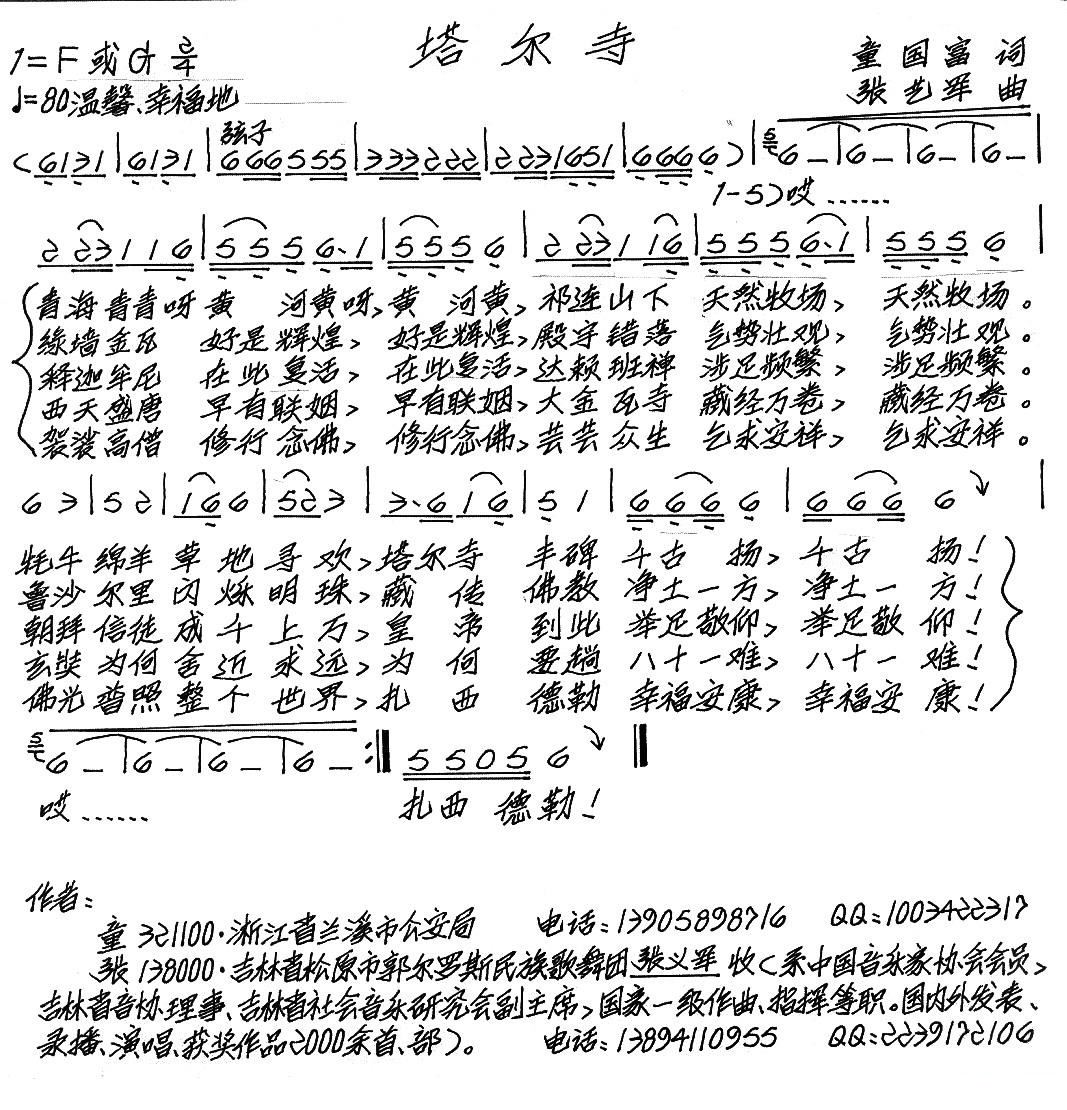 塔尔寺
1=F或G 2/4
童国富 词
♩=80温馨、幸福地
张艺军 曲
弦子
(6131|6131|666555|333222|2231651|6666)|5 6–|6–|6–|6–|
1-5)哎……
2 23 1 1 6|5 5 5 6·1|5 5 5 6|2 23 1 16|5 5 5 6·1|5 5 5 6|
青海青青呀黄 河黄呀,黄 河黄,祁连山下 天然牧场, 天然牧场。
绿墙金瓦 好是辉煌, 好是辉煌,殿宇错落 气势壮观, 气势壮观。
释迦牟尼 在此复活, 在此复活,达赖班禅 涉足频繁, 涉足频繁。
西天盛唐 早有联姻, 早有联姻,大金瓦寺 藏经万卷, 藏经万卷。
袈裟高僧 修行念佛, 修行念佛,芸芸众生 乞求安祥, 乞求安祥。
6 3|5 2|1 6 6|5 2 3|3·6 1 6|5 1|6 6 6 6|6 6 6 6|
牦牛绵羊草地寻欢,塔尔寺 丰碑 千古 扬, 千古 扬!
鲁沙尔里闪烁明珠,藏 传 佛教 净土一方, 净土一 方!
朝拜信徒成千上万,皇 帝 到此 举足敬仰, 举足敬 仰!
玄奘为何舍近求远,为 何 要趟 八十一难, 八十一 难!
佛光普照整个世界,扎 西 德勒 幸福安康, 幸福安 康!
5 6–|6–|6–|6–:‖5 5 0 5 6‖
哎…… 扎西 德勒!
作者:
童 321100·浙江省兰溪市公安局 电话:13905898716 QQ:1003422317
张 138000·吉林省松原市郭尔罗斯民族歌舞团张义军 收(系中国音乐家协会会员,
吉林省音协理事、吉林省社会音乐研究会副主席,国家一级作曲、指挥等职。国内外发表、
录播、演唱、获奖作品2000余首、部)。 电话:13894110955 QQ:2239172106